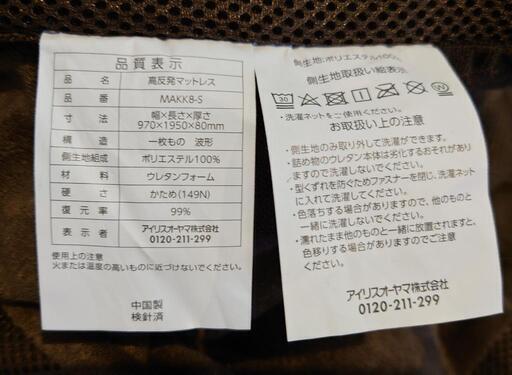 品質表示
品 名 高反発マットレス
品 番 MAKK8-S
寸 法 幅×長さ×厚さ
970×1950×80mm
構 造 一枚もの 波形
側生地組成 ポリエステル100%
材 料 ウレタンフォーム
硬 さ かため(149N)
復 元 率 99%
表 示 者 アイリスオーヤマ株式会社
0120-211-299
使用上の注意
火または温度の高いものに近づけないでください。
中国製
検針済
側生地:ポリエステル100%
側生地取扱い絵表示
30
・洗濯ネットをご使用ください。
お取扱い上の注意
・側生地のみ取り外して洗濯ができます。
・詰め物のウレタン本体は劣化するおそれがあり
ますので洗濯しないでください。
・型くずれを防ぐためファスナーを閉じ、洗濯ネット
に入れて洗濯してください。
・色落ちする場合がありますので、他のものと
一緒に洗濯しないでください。
・濡れたまま他のものと一緒に放置されますと、
色移りする場合がありますのでご注意
ください。
アイリスオーヤマ株式会社
0120-211-299